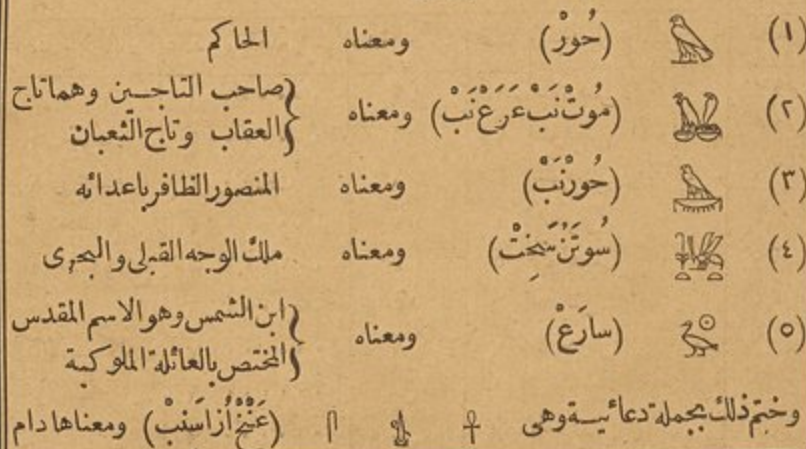 (١) 𓅃 (حُورْ) ومعناه الحاكم
(٢) (مُوتْ نَبْ عَرَعْ نَبْ) ومعناه {صاحب التاجين وهما تاج
العقاب وتاج الثعبان
(٣) (حُورْنَبْ) ومعناه المنصور الظافر باعدائه
(٤) (سُوتَنْ سَخِتْ) ومعناه ملك الوجه القبلى والبحرى
(٥) (سارَعْ) ومعناه {ابن الشمس وهو الاسم المقدس
المختص بالعائلة الملوكية
وختم ذلك بجملة دعائية وهى 𓋹 𓍑 𓋴 (عَنْخْ أُزَا سَنْبْ) ومعناها دام